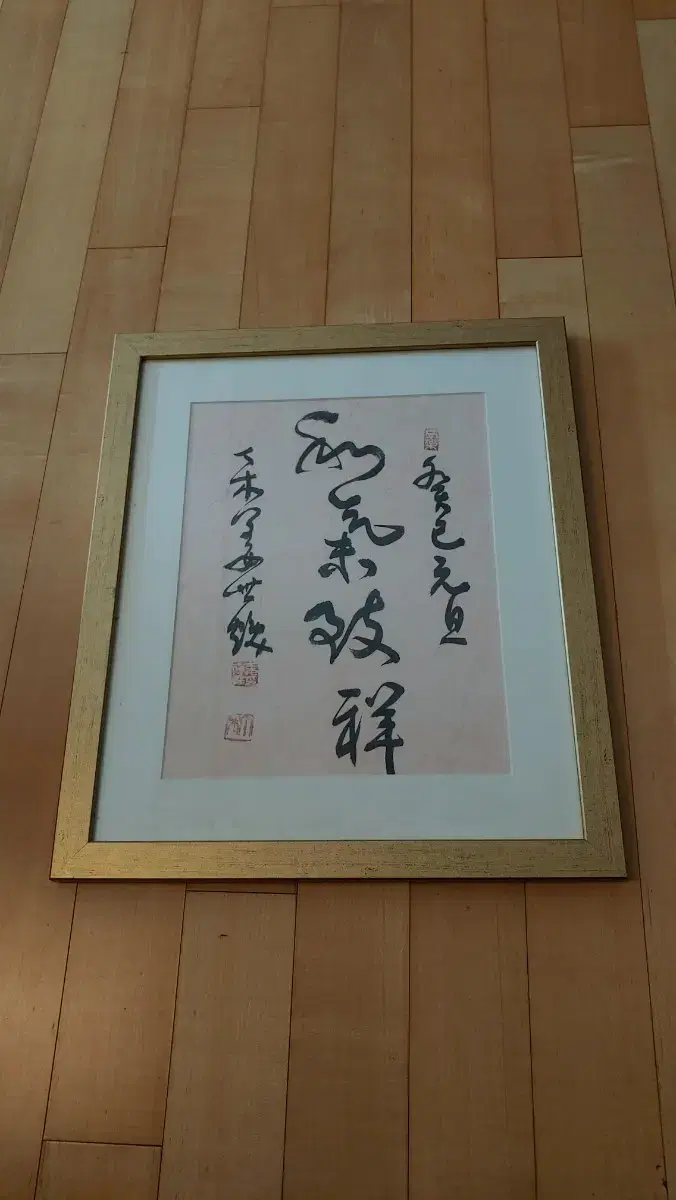 癸巳元旦
和氣致祥
姜世